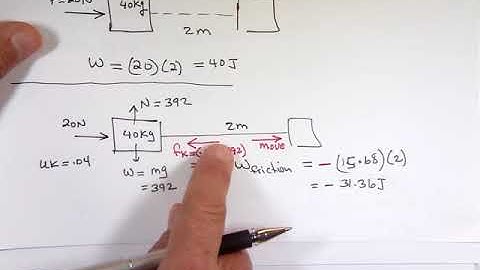 40kg
2m
W = (20)(2) = 40J
N = 392
20N
40kg
2m
move
uk = .04
W = mg
= 392
Wfriction = -(15.68)(2)
= - 31.36J